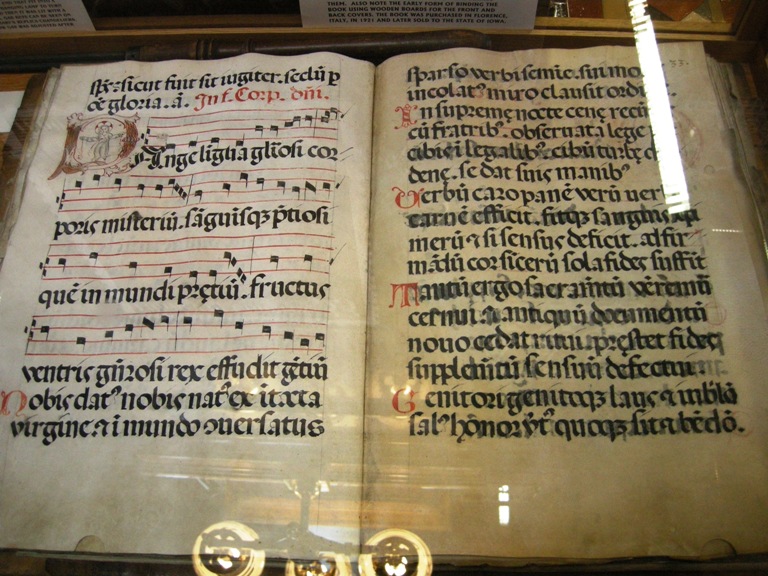 THEM. ALSO NOTE THE EARLY FORM OF BINDING THE
BOOK USING WOODEN BOARDS FOR THE FRONT AND
BACK COVERS. THE BOOK WAS PURCHASED IN FLORENCE,
ITALY, IN 1921 AND LATER SOLD TO THE STATE OF IOWA.
sicut fuit sit iugiter. seclū p
oē gloria. a. Inf. Corp. dñi.
Pange ligua gliosi cor
poris misteriū. sāguisqȝ ptiosi
quē in mundi pręciū. fructus
ventris gñrosi rex effudit gētiū
Nobis dat⁹ nobis nat⁹ ex itacta
virgine & i mundo ɔuersatus
33.
sparso verbi semie. sui mo
incolat⁹ miro clausit ordi
In supremę nocte cenę recū
cū fratrib⁹. obseruata lege
cibiei legalib⁹. cibū turbę
denę. se dat suis manib⁹
Verbū caro panē verū ver
carnē efficit. fitqȝ sanguis xpi
merū & si sensus deficit. ad fir
mādū cor sicerū sola fides suffit
Tantū ergo sacramtū venemū
cernui. & antiquū documentū
nouo cedat ritui. pręstet fides
supplemtū sensuū defectui
Genitori genitoqȝ laus & iubilō
sal⁹ hōnor vt⁹ quoqȝ sit & bēdō.